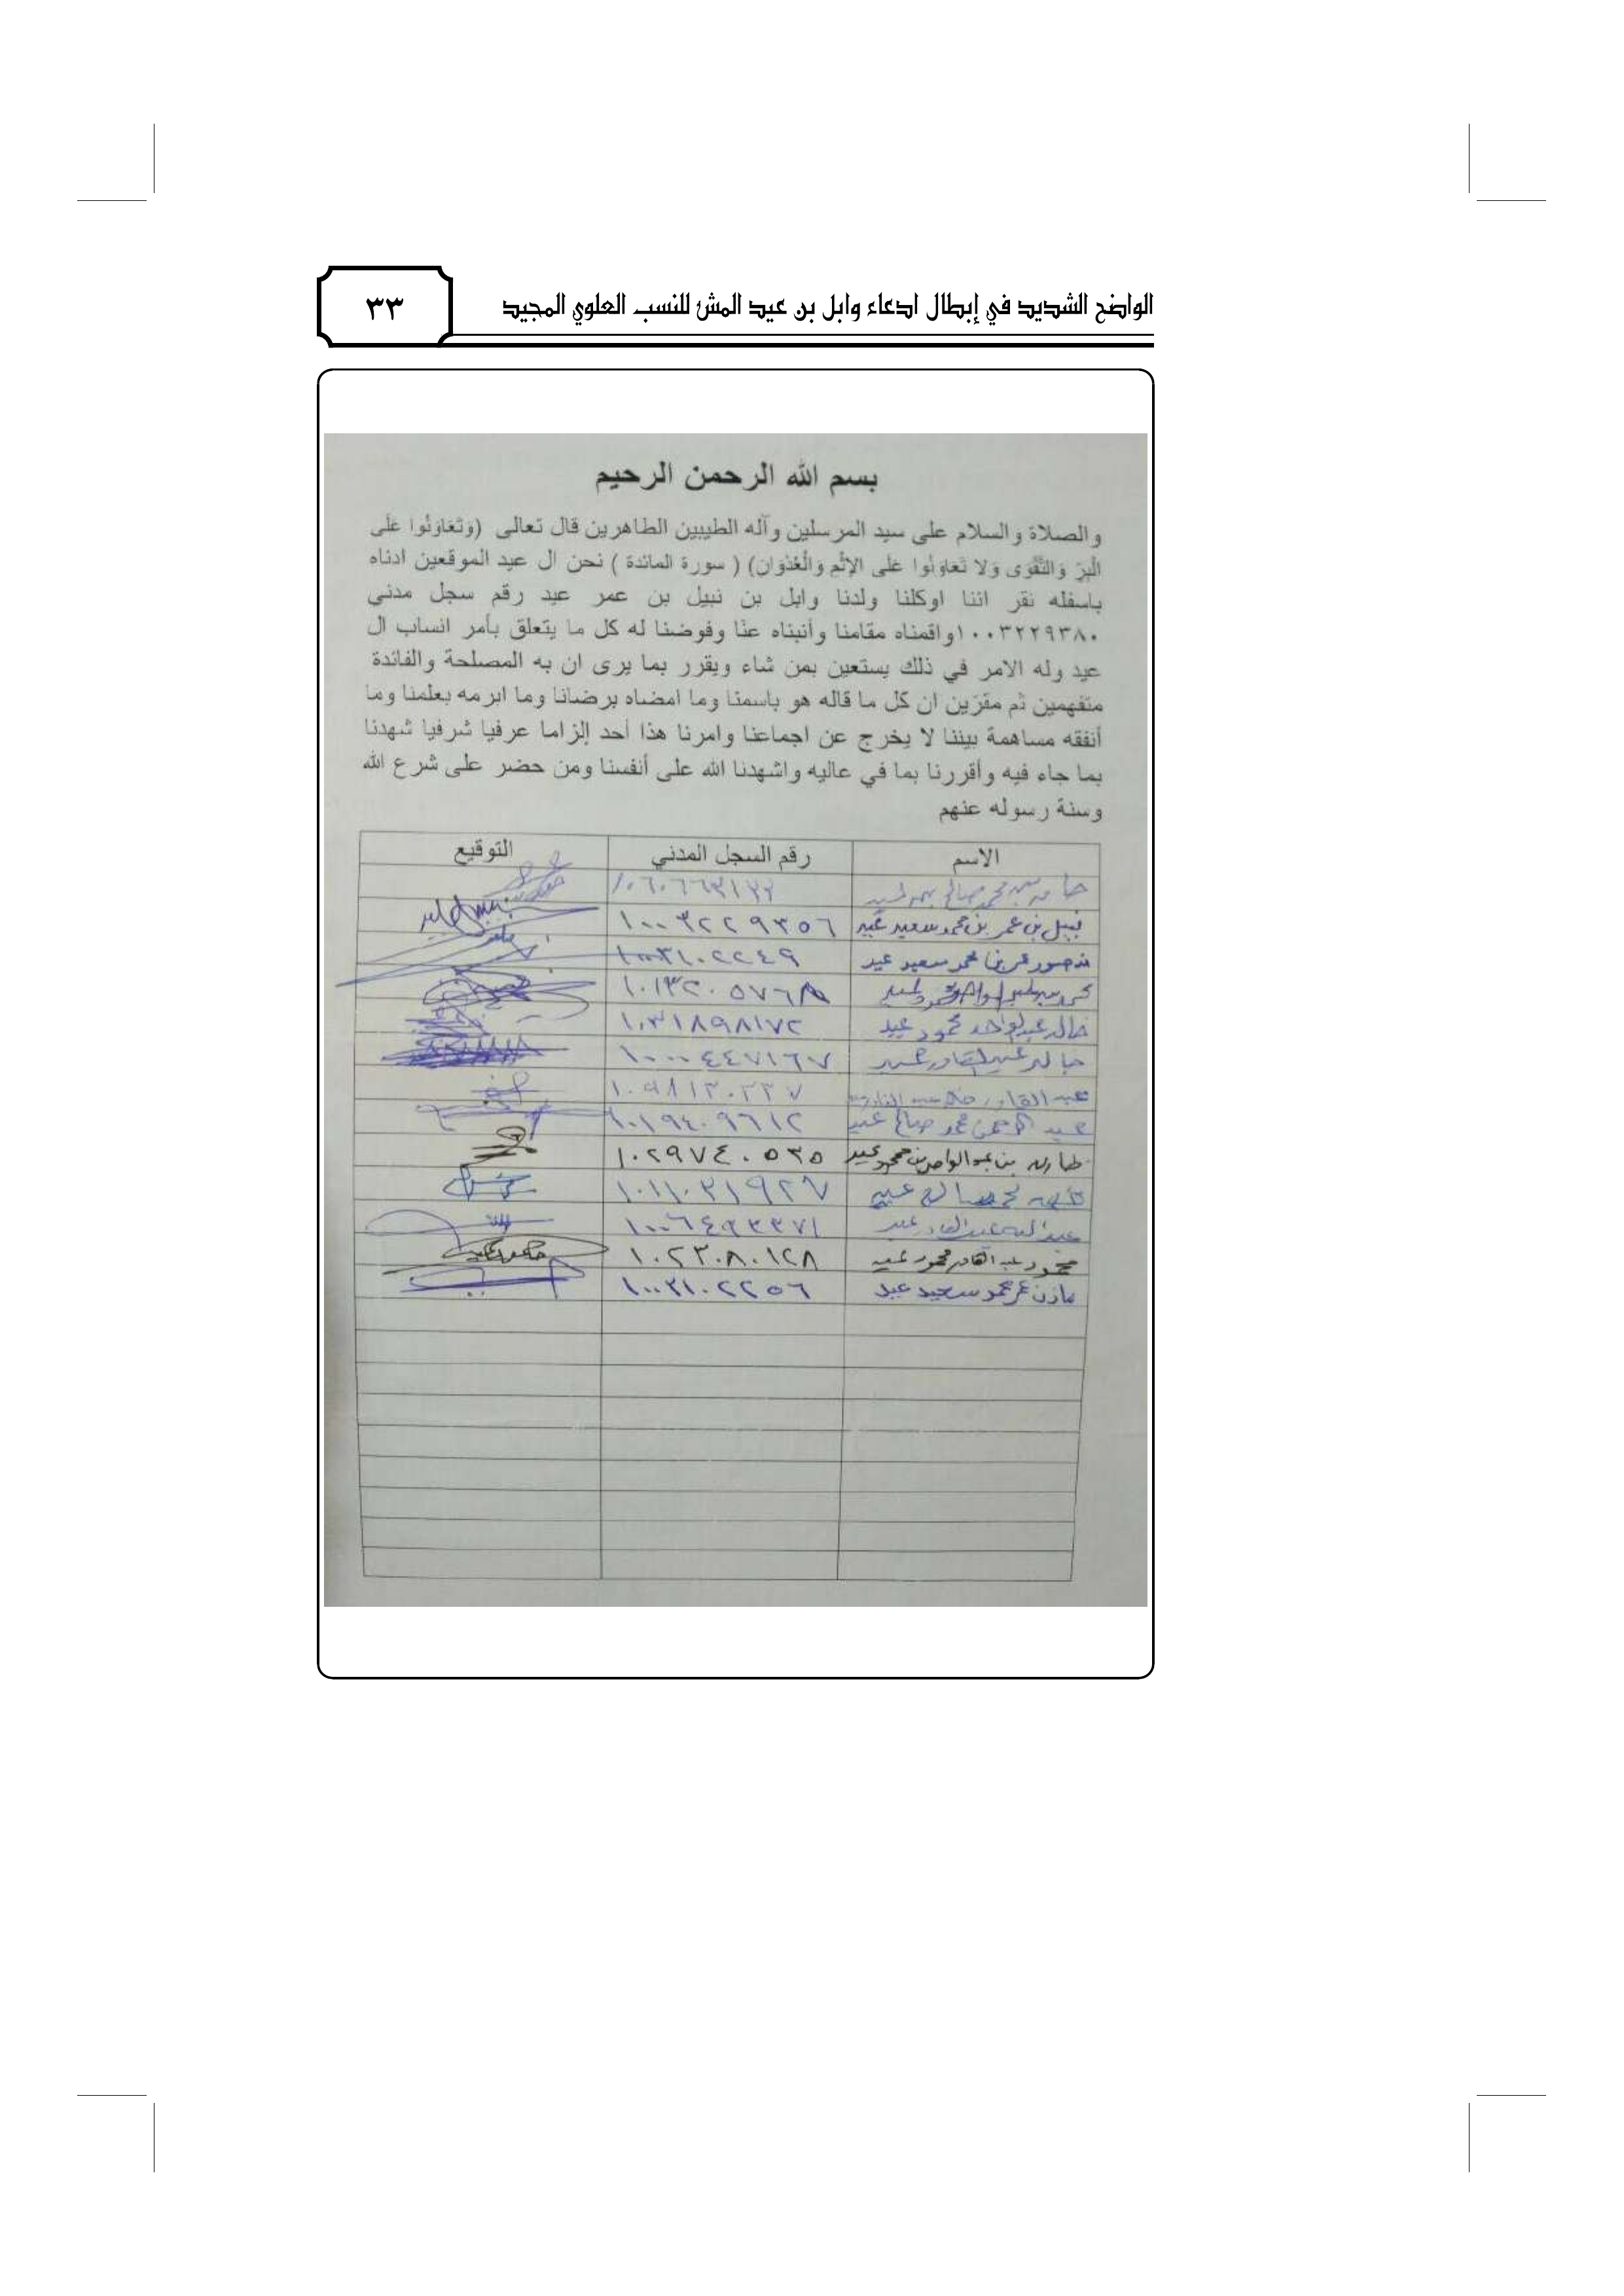 الواضح الشديد في إبطال ادعاء وابل بن عيد المش للنسب العلوي المجيد
٣٣
بسم الله الرحمن الرحيم
والصلاة والسلام على سيد المرسلين وآله الطيبين الطاهرين قال تعالى (وَتَعَاوَنُوا عَلَى
الْبِرِّ وَالتَّقْوَى وَلَا تَعَاوَنُوا عَلَى الإِثْمِ وَالْعُدْوَانِ) ( سورة المائدة ) نحن ال عيد الموقعين ادناه
باسفله نقر اننا اوكلنا ولدنا وابل بن نبيل بن عمر عيد رقم سجل مدني
١٠٠٣٢٢٩٣٨٠واقمناه مقامنا وأنبناه عنّا وفوضنا له كل ما يتعلق بأمر انساب ال
عيد وله الامر في ذلك يستعين بمن شاء ويقرر بما يرى ان به المصلحة والفائدة
متفهمين ثم مقرّين ان كل ما قاله هو باسمنا وما امضاه برضانا وما ابرمه بعلمنا وما
أنفقه مساهمة بيننا لا يخرج عن اجماعنا وامرنا هذا أحد إلزاما عرفيا شرفيا شهدنا
بما جاء فيه وأقررنا بما في عاليه واشهدنا الله على أنفسنا ومن حضر على شرع الله
وسنة رسوله عنهم
الاسم رقم السجل المدني التوقيع
محمد صالح ١٠٦٠٦٦٣١٢٢
نبيل بن عمر بن محمد سعيد عيد ١٠٠٣٢٢٩٣٥٦
منصور عمر بن محمد سعيد عيد ١٠٠٣١٠٢٢٤٩
١٠١٣٢٠٥٧٦٨
خالد عبدالواحد محمود عيد ١٠٣١٨٩٨١٧٢
خالد عبدالقادر عيد ١٠٠٠٤٤٧١٦٧
عبد القادر خالد عبد القادر ١٠٩٨١٣٠٢٣٧
عبد الرحمن محمد صالح عيد ١٠١٩٤٠٩٦١٢
طارق بن عبد الواحد بن محمود عيد ١٠٢٩٧٤٠٥٣٥
محمد صالح عيد ١٠١١٠٣١٩٢٧
عبدالله عبدالقادر عيد ١٠٠٦٤٩٣٣٧١
محمود عبد القادر محمود عيد ١٠٢٣٠٨٠١٢٨
مازن عمر محمد سعيد عيد ١٠٠٣١٠٢٢٥٦